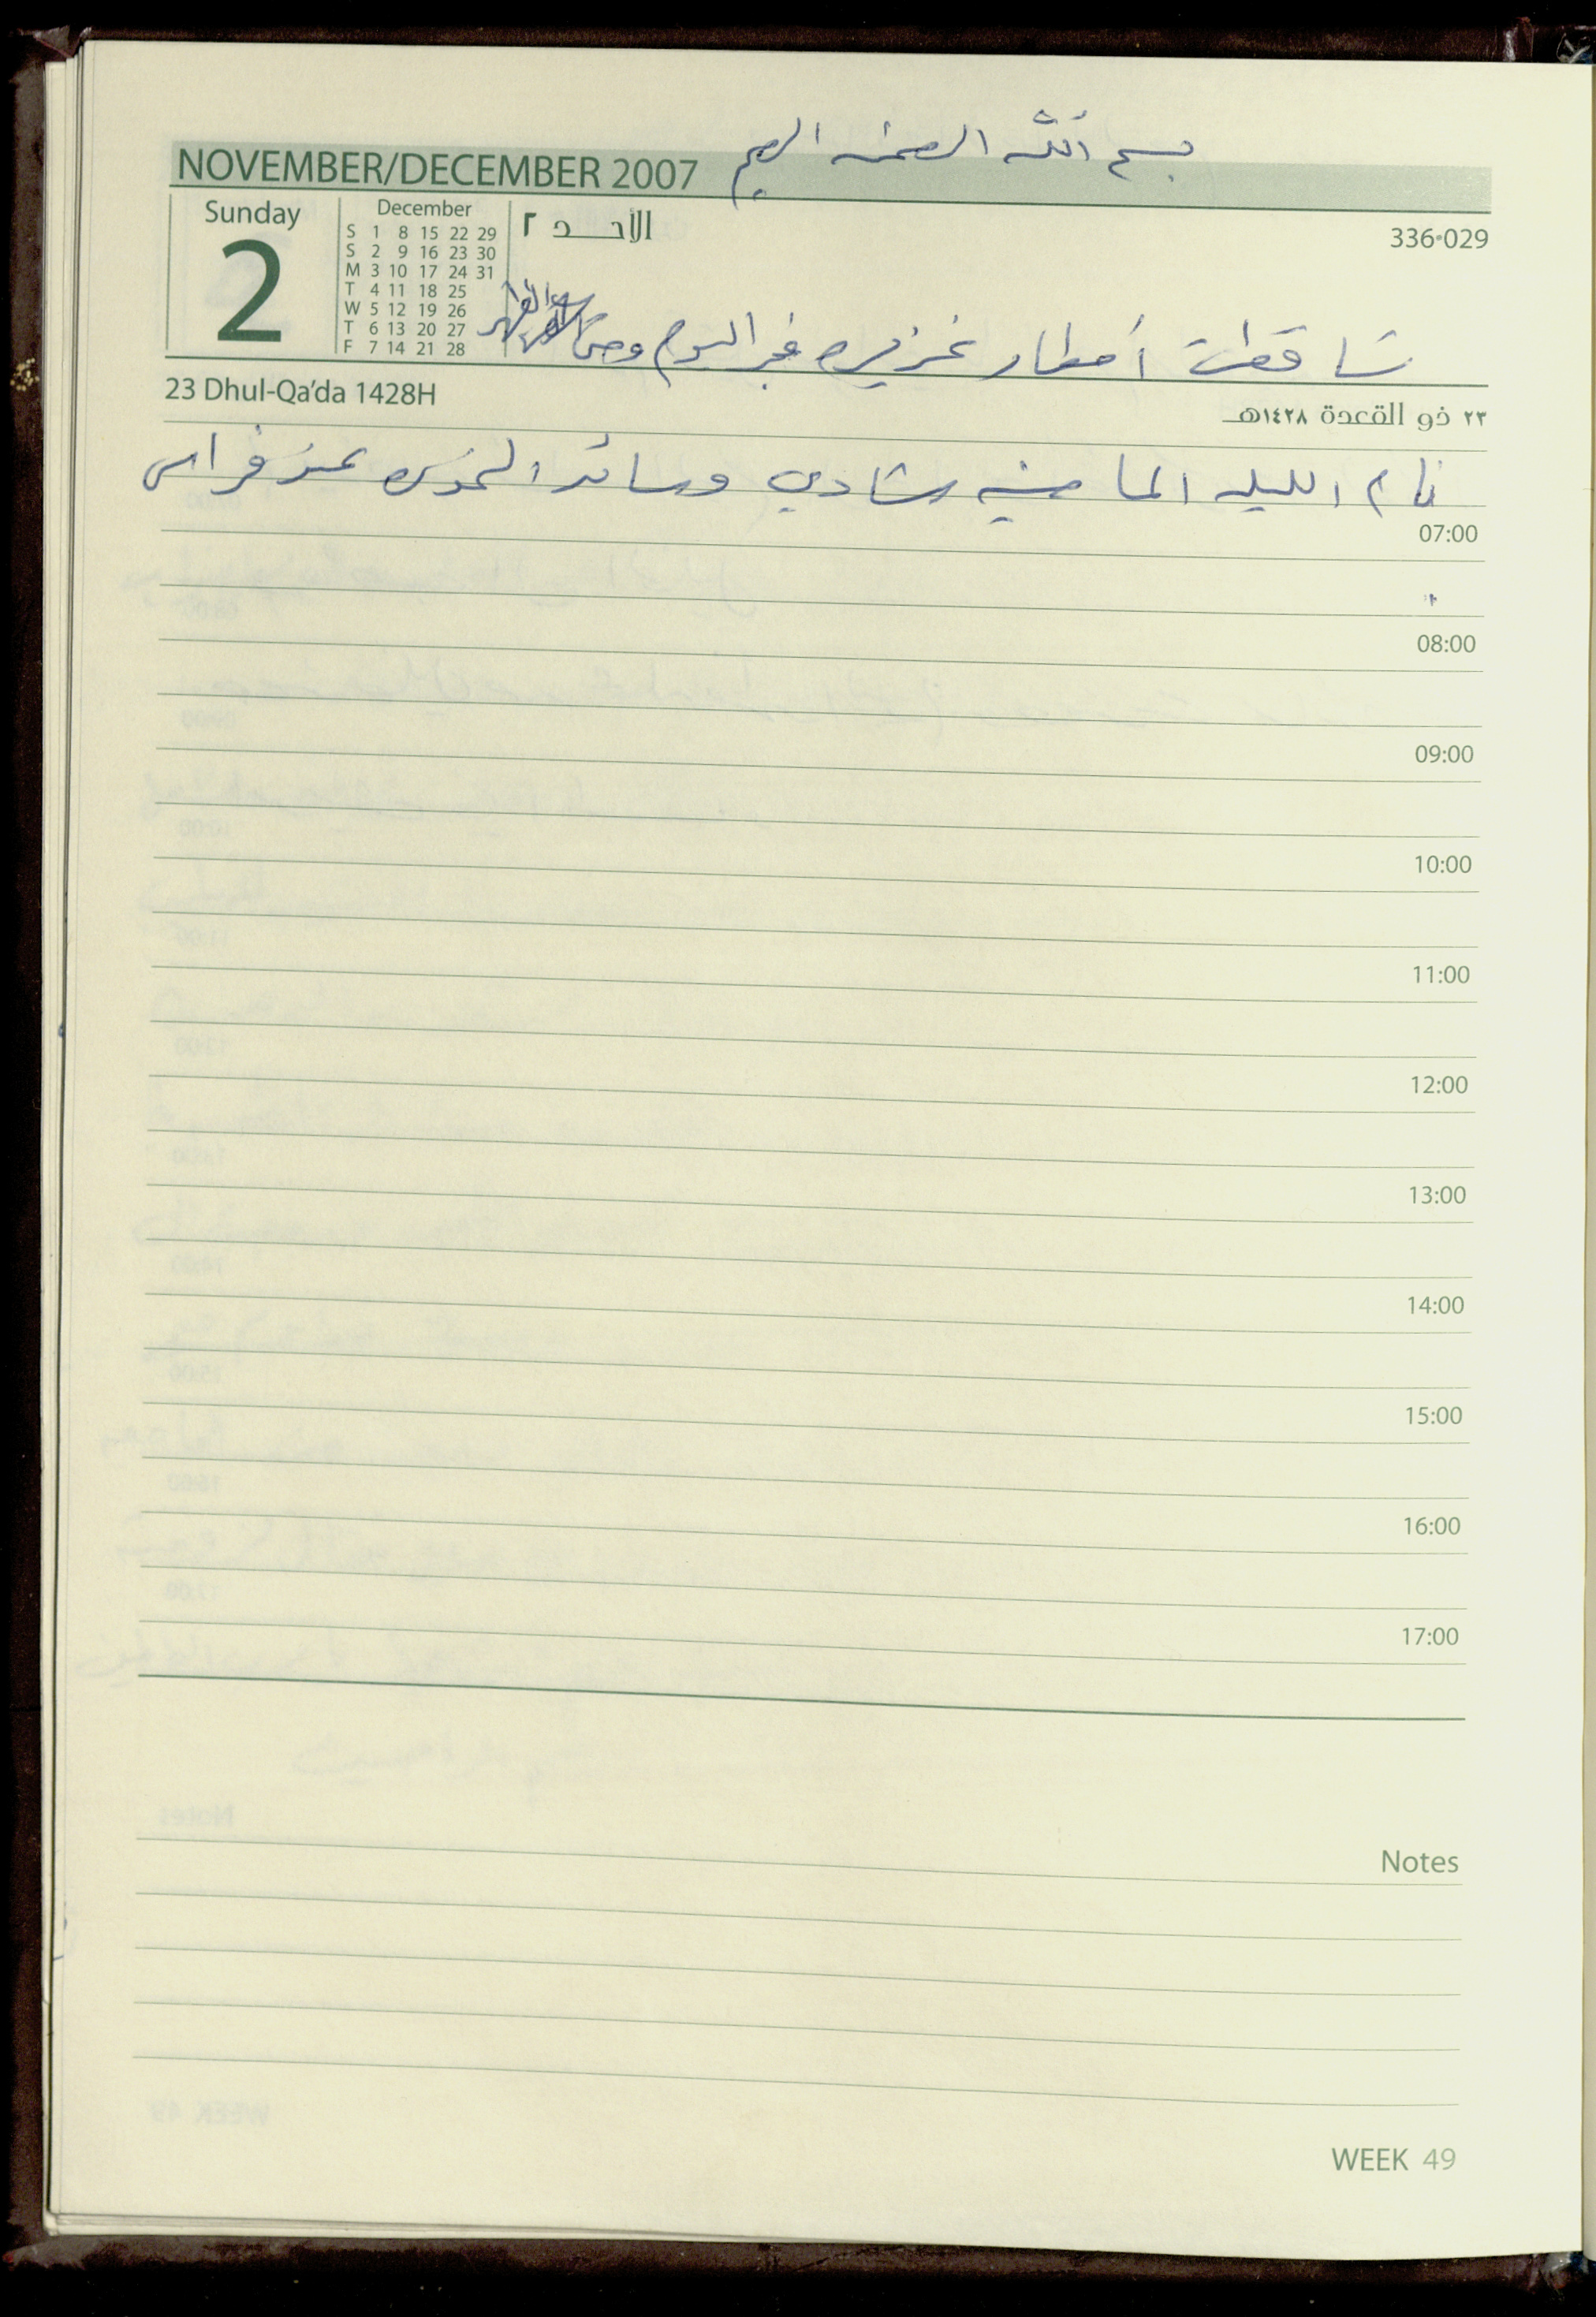 بسم الله الرحمن الرحيم
NOVEMBER/DECEMBER 2007
Sunday
2
December
S 1 8 15 22 29
S 2 9 16 23 30
M 3 10 17 24 31
T 4 11 18 25
W 5 12 19 26
T 6 13 20 27
F 7 14 21 28
الأحد ٢
336-029
تساقطت أمطار غزيره فجر اليوم وحتى
23 Dhul-Qa'da 1428H
٢٣ ذو القعدة ١٤٢٨هـ
نام الليله الماضيه شادي وسائد عند فراس
07:00
08:00
09:00
10:00
11:00
12:00
13:00
14:00
15:00
16:00
17:00
Notes
WEEK 49